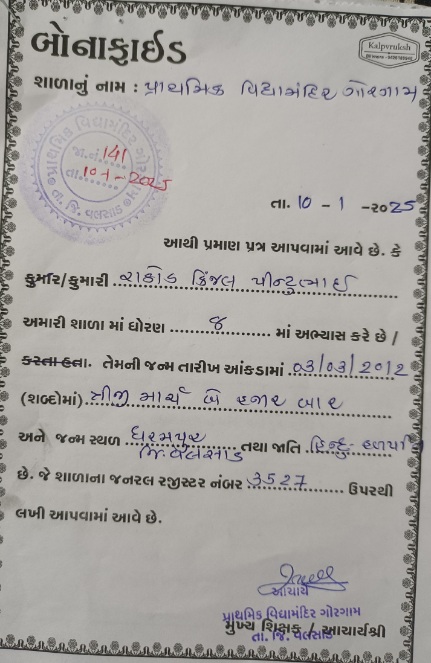 બોનાફાઈડ
Kalpvruksh
શાળાનું નામ : પ્રાથમિક વિદ્યામંદિર ગોરગામ
પ્રાથમિક વિદ્યામંદિર ગોરગામ
જા.નં. 141
તા. 10-1-2025
તા. જિ. વલસાડ
તા. 10 - 1 -૨૦25
આથી પ્રમાણ પત્ર આપવામાં આવે છે. કે
કુમાર/કુમારી રાઠોડ કિંજલ પીન્ટુભાઈ
અમારી શાળા માં ધોરણ ૭ માં અભ્યાસ કરે છે /
કરતા હતા. તેમની જન્મ તારીખ આંકડામાં 03/03/2012
(શબ્દોમાં) ત્રીજી માર્ચ બે હજાર બાર
અને જન્મ સ્થળ ધરમપુર જિ. વલસાડ તથા જાતિ હિન્દુ- હળપતિ
છે. જે શાળાના જનરલ રજીસ્ટર નંબર 3527 ઉપરથી
લખી આપવામાં આવે છે.
આચાર્ય
પ્રાથમિક વિદ્યામંદિર ગોરગામ
મુખ્ય શિક્ષક / આચાર્યશ્રી
તા. જિ. વલસાડ